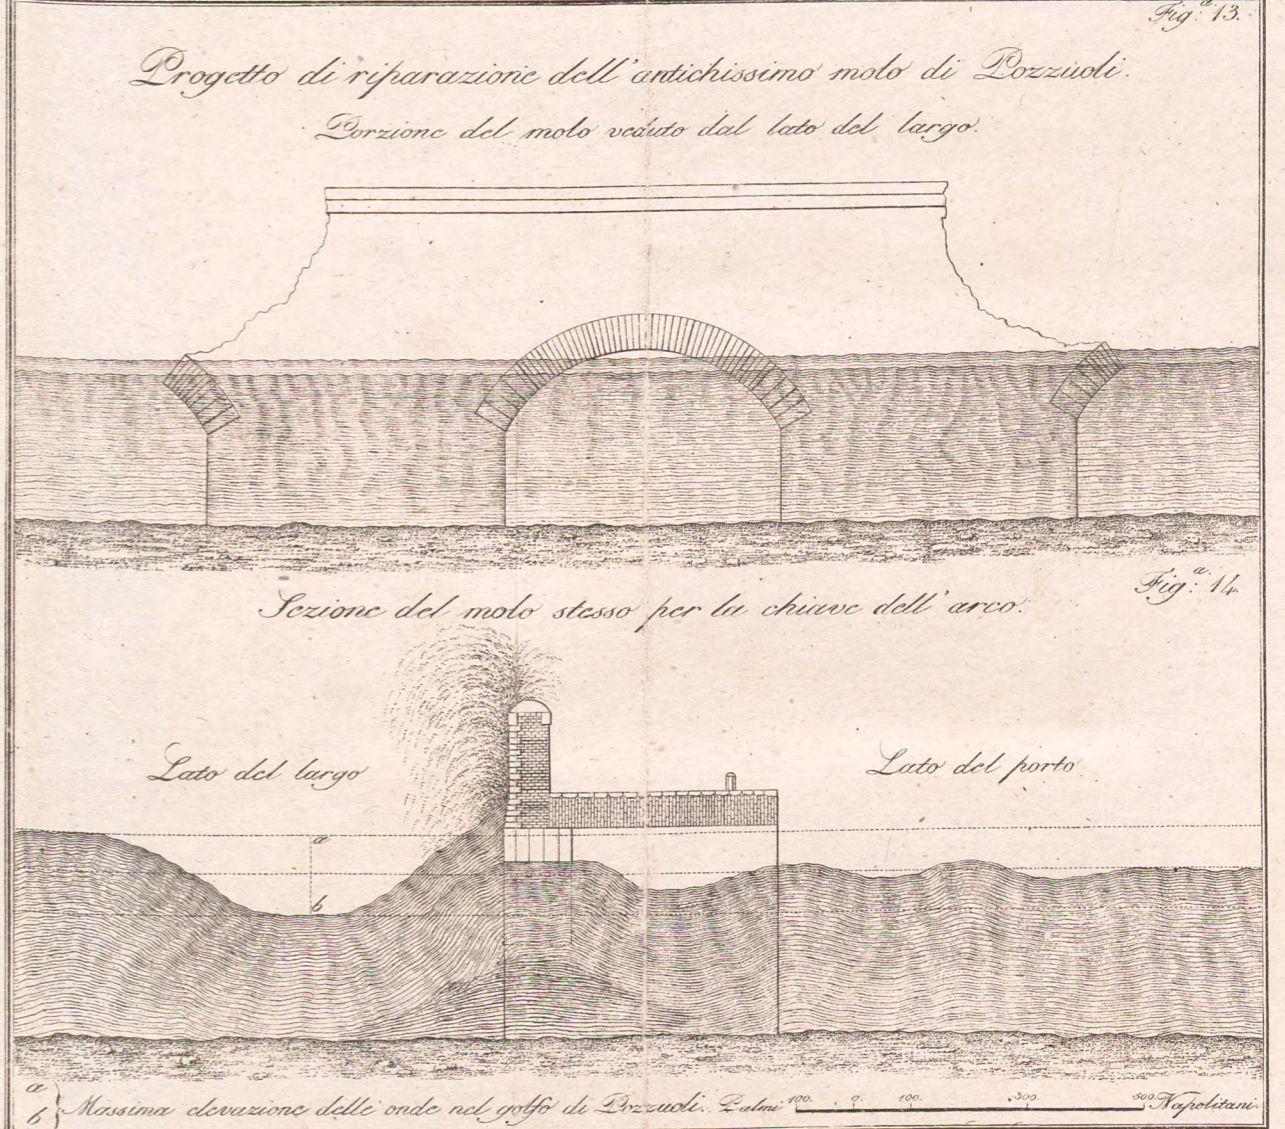 Fig.ª 13.
Progetto di riparazione dell'antichissimo molo di Pozzuoli.
Porzione del molo veduto dal lato del largo.
Fig.ª 14.
Sezione del molo stesso per la chiave dell'arco.
Lato del largo
Lato del porto
a
b
a
b } Massima elevazione delle onde nel golfo di Pozzuoli. Palmi 100. 0. 100. 300. 500. Napolitani.